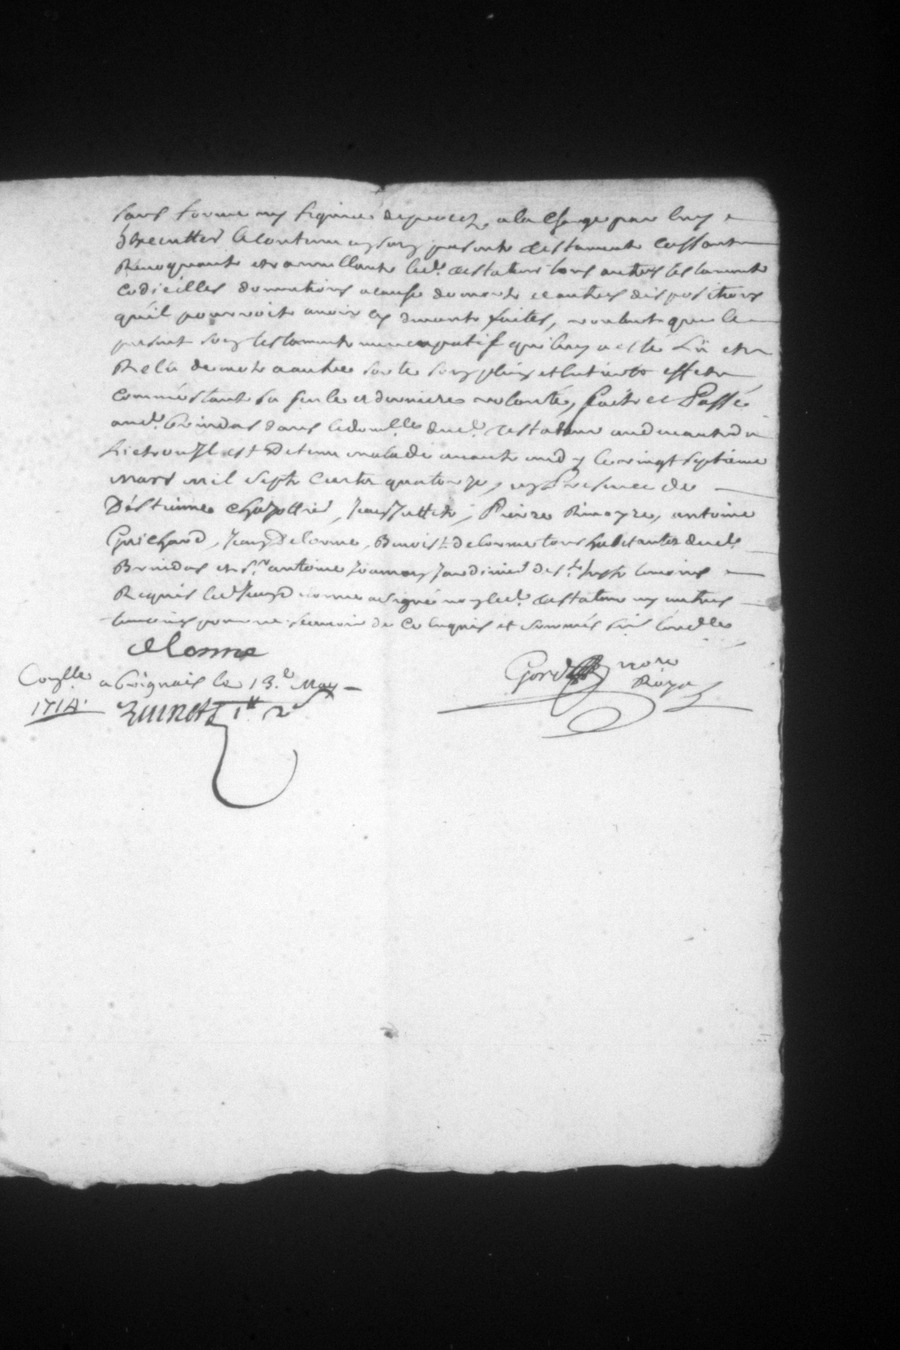 sans forme ny figure de procez, a la charge par luy
d'executter le contenu au son present testament cassant
Revoquant et annullant led. testateur tous autres testaments
codicilles donnations a cause de mort et autres dispositions
qu'il pourroit avoir cy devant faites, voulant que le
present son testament nuncupatif qui luy a esté Lu et
Relû de mot a autre sorte son plein et entier effet
comme estant sa seule et derniere volonté, fait et Passé
aud. Brindas dans le domlle dud. testateur
Lict ou Il est detenu malade avant midy le vingt septieme
mars mil sept cents quatorze, en Presence de
D'estienne chazottier, Jean, Pierre Rivoyre, antoine
Guichard, Jean Delorme, Benoist delorme tous habitants dud.
Brindas et sr. antoine Jardinier de st. temoins
Requis led. Jean delorme a signé non led. testateur ny autres
temoins pour ne sçavoir de ce enquis et sommés
delorme
Conlle a Grignais le 13.e May
1714.
nore
Royal